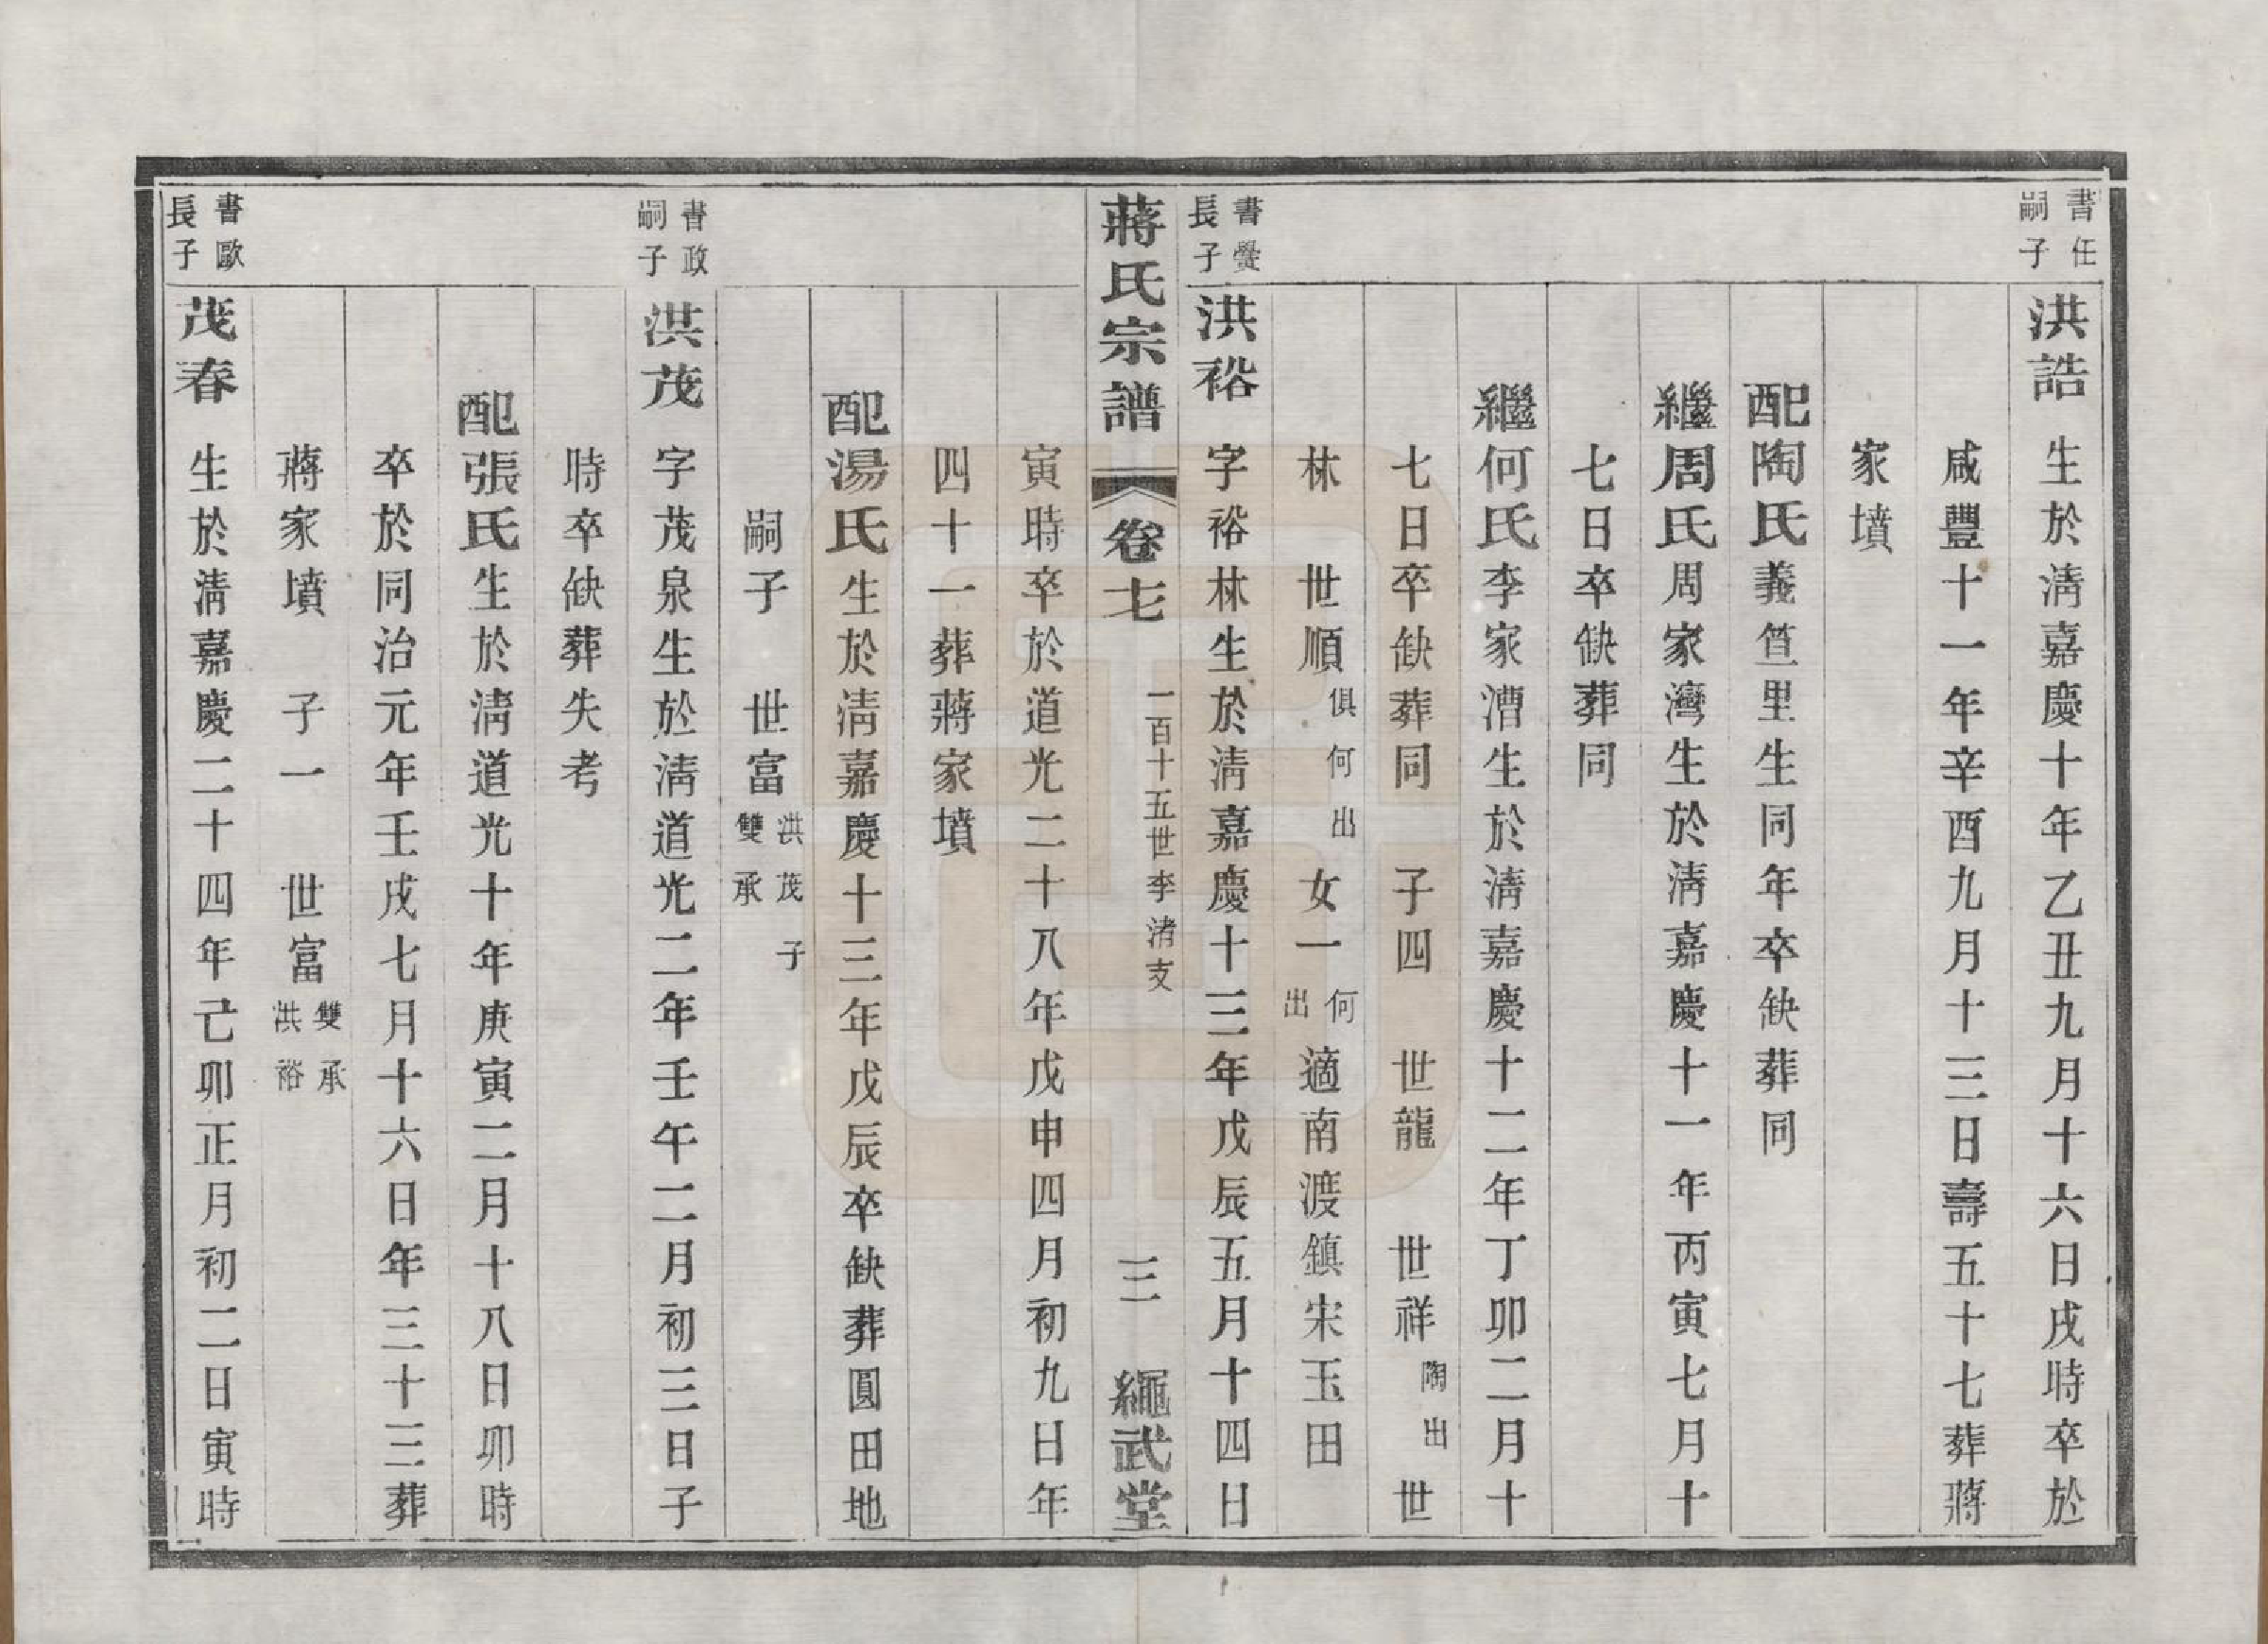 書任
嗣子
洪誥 生於淸嘉慶十年乙丑九月十六日戌時卒於
咸豐十一年辛酉九月十三日壽五十七葬蔣
家墳
配陶氏義笪里生同年卒缺葬同
繼周氏周家灣生於淸嘉慶十一年丙寅七月十
七日卒缺葬同
繼何氏李家漕生於淸嘉慶十二年丁卯二月十
七日卒缺葬同 子四 世龍 世祥陶出 世
林 世順俱何出 女一何出適南渡鎮宋玉田
書黌
長子
洪裕 字裕林生於淸嘉慶十三年戊辰五月十四日
蔣氏宗譜 卷七 一百十五世李渚支 三 繩武堂
寅時卒於道光二十八年戊申四月初九日年
四十一葬蔣家墳
配湯氏生於淸嘉慶十三年戊辰卒缺葬圓田地
嗣子 世富洪茂子雙承
書政
嗣子
洪茂 字茂泉生於淸道光二年壬午二月初三日子
時卒缺葬失考
配張氏生於淸道光十年庚寅二月十八日卯時
卒於同治元年壬戌七月十六日年三十三葬
蔣家墳 子一 世富雙承洪裕
書歐
長子
茂春 生於淸嘉慶二十四年己卯正月初二日寅時